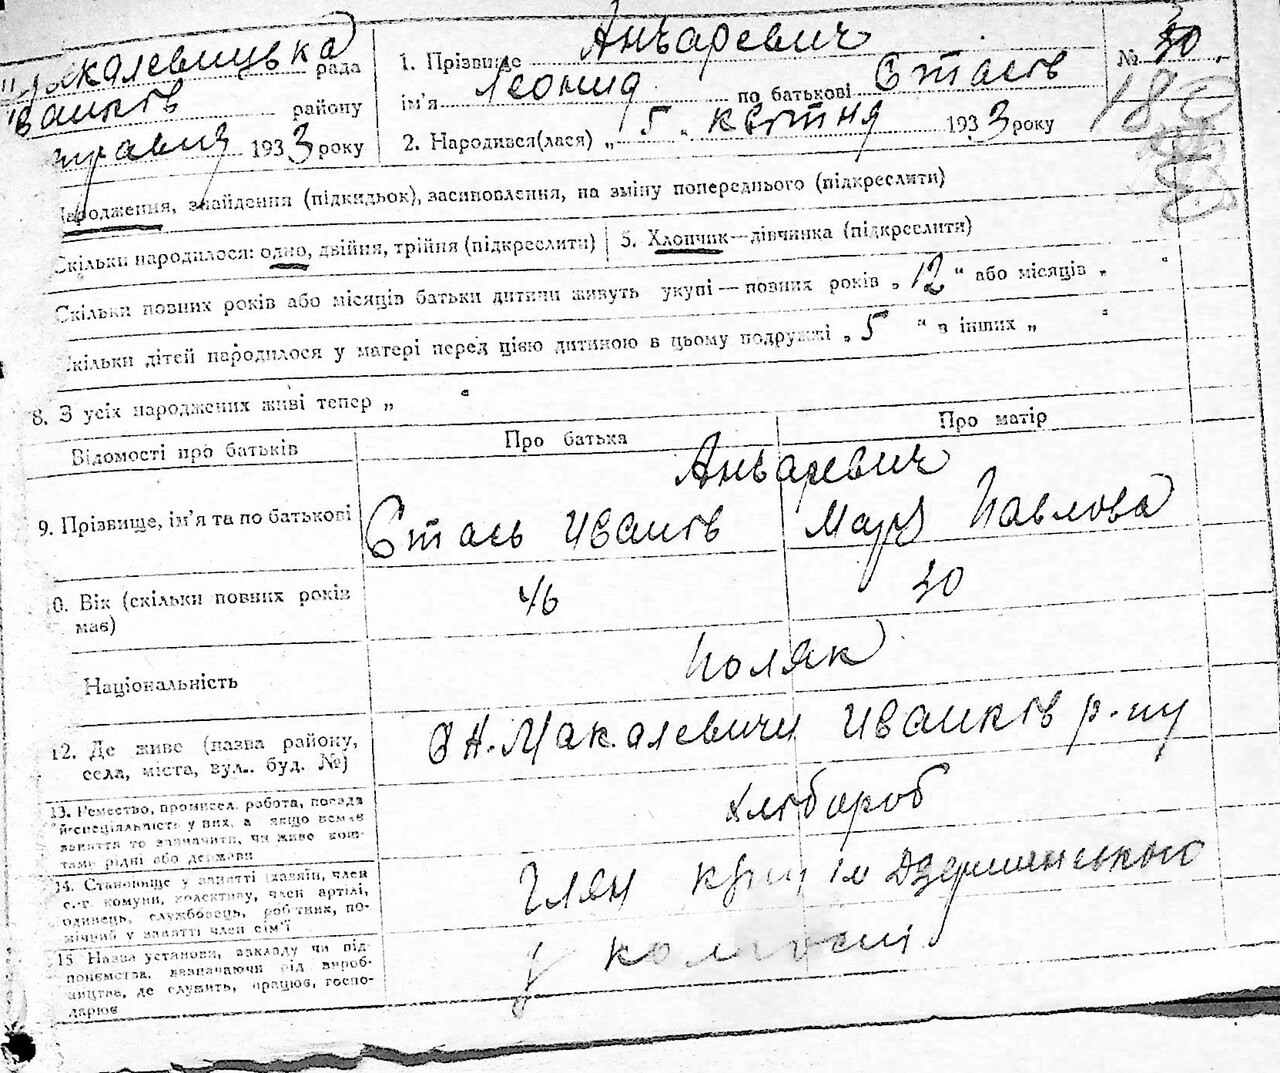 Макалевицька рада
Іванків району
травня 1933 року
1. Прізвище Анчаревич
ім'я Леонид по батькові Стасів
2. Народився(лася) „ 5 „ квітня 1933 року
№ 30
18
Народження, знайдення (підкидьок), засиновлення, на зміну попереднього (підкреслити)
Скільки народилося: одно, двійня, трійня (підкреслити)
5. Хлопчик—дівчинка (підкреслити)
Скільки повних років або місяців батьки дитини живуть укупі—повних років „ 12 “ або місяців „ “
Скільки дітей народилося у матері перед цією дитиною в цьому подружжі „ 5 “ в інших „ “
8. З усіх народжених живі тепер „ “
Відомості про батьків
Про батька
Про матір
9. Прізвище, ім'я та по батькові
Анчаревич
Стась Иванів
Мар Павлова
0. Вік (скільки повних років
має)
46
30
Національність
Поляк
12. Де живе (назва району,
села, міста, вул., буд. №)
Макалевичи Иванків р-ну
13. Ремество, промисел, робота, посада
й спеціальність у них, а якщо немає
заняття то зазначити, чи живе кош-
тами рідні або держави
хлібороб
14. Становище у занятті (хазяїн, член
с.-г. комуни, колективу, член артілі,
одинець, службовець, робітник, по-
мічний у занятті член сім'ї
Член ім Дзержинського
15. Назва установи, закладу чи під-
приємства, зазначаючи рід вироб-
ництва, де служить, працює, госпо-
дарює
у колгоспі